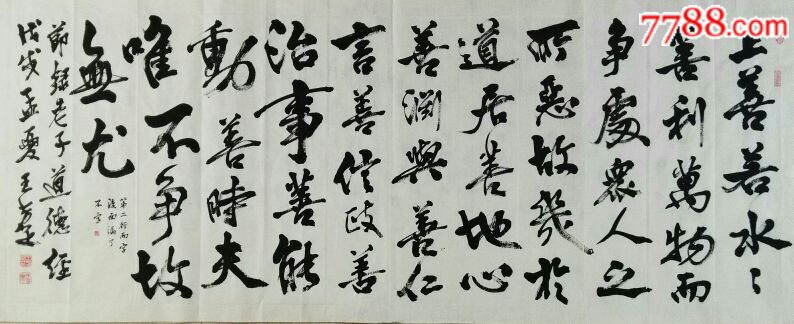 7788.com
上善若水〻
善利萬物而
争處衆人之
所惡故幾於
道居善地心
善淵與善仁
言善信政善
治事善能
動善時夫
唯不争故
無尤
第二行而字
後面漏了
不字
節錄老子道德经
戊戌孟夏王